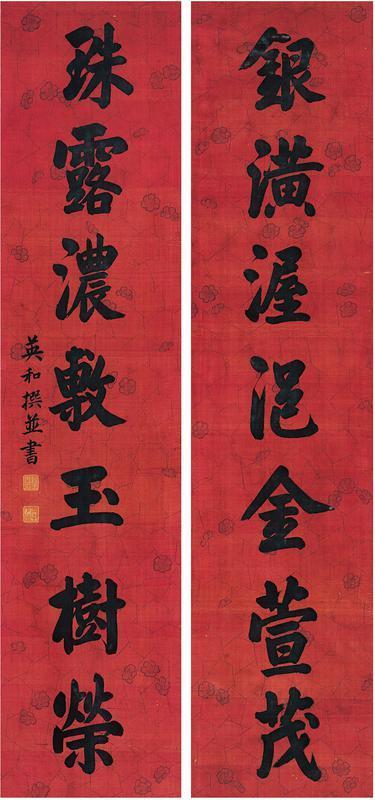 銀潢渥浥金萱茂
珠露濃敷玉樹榮
英和撰並書